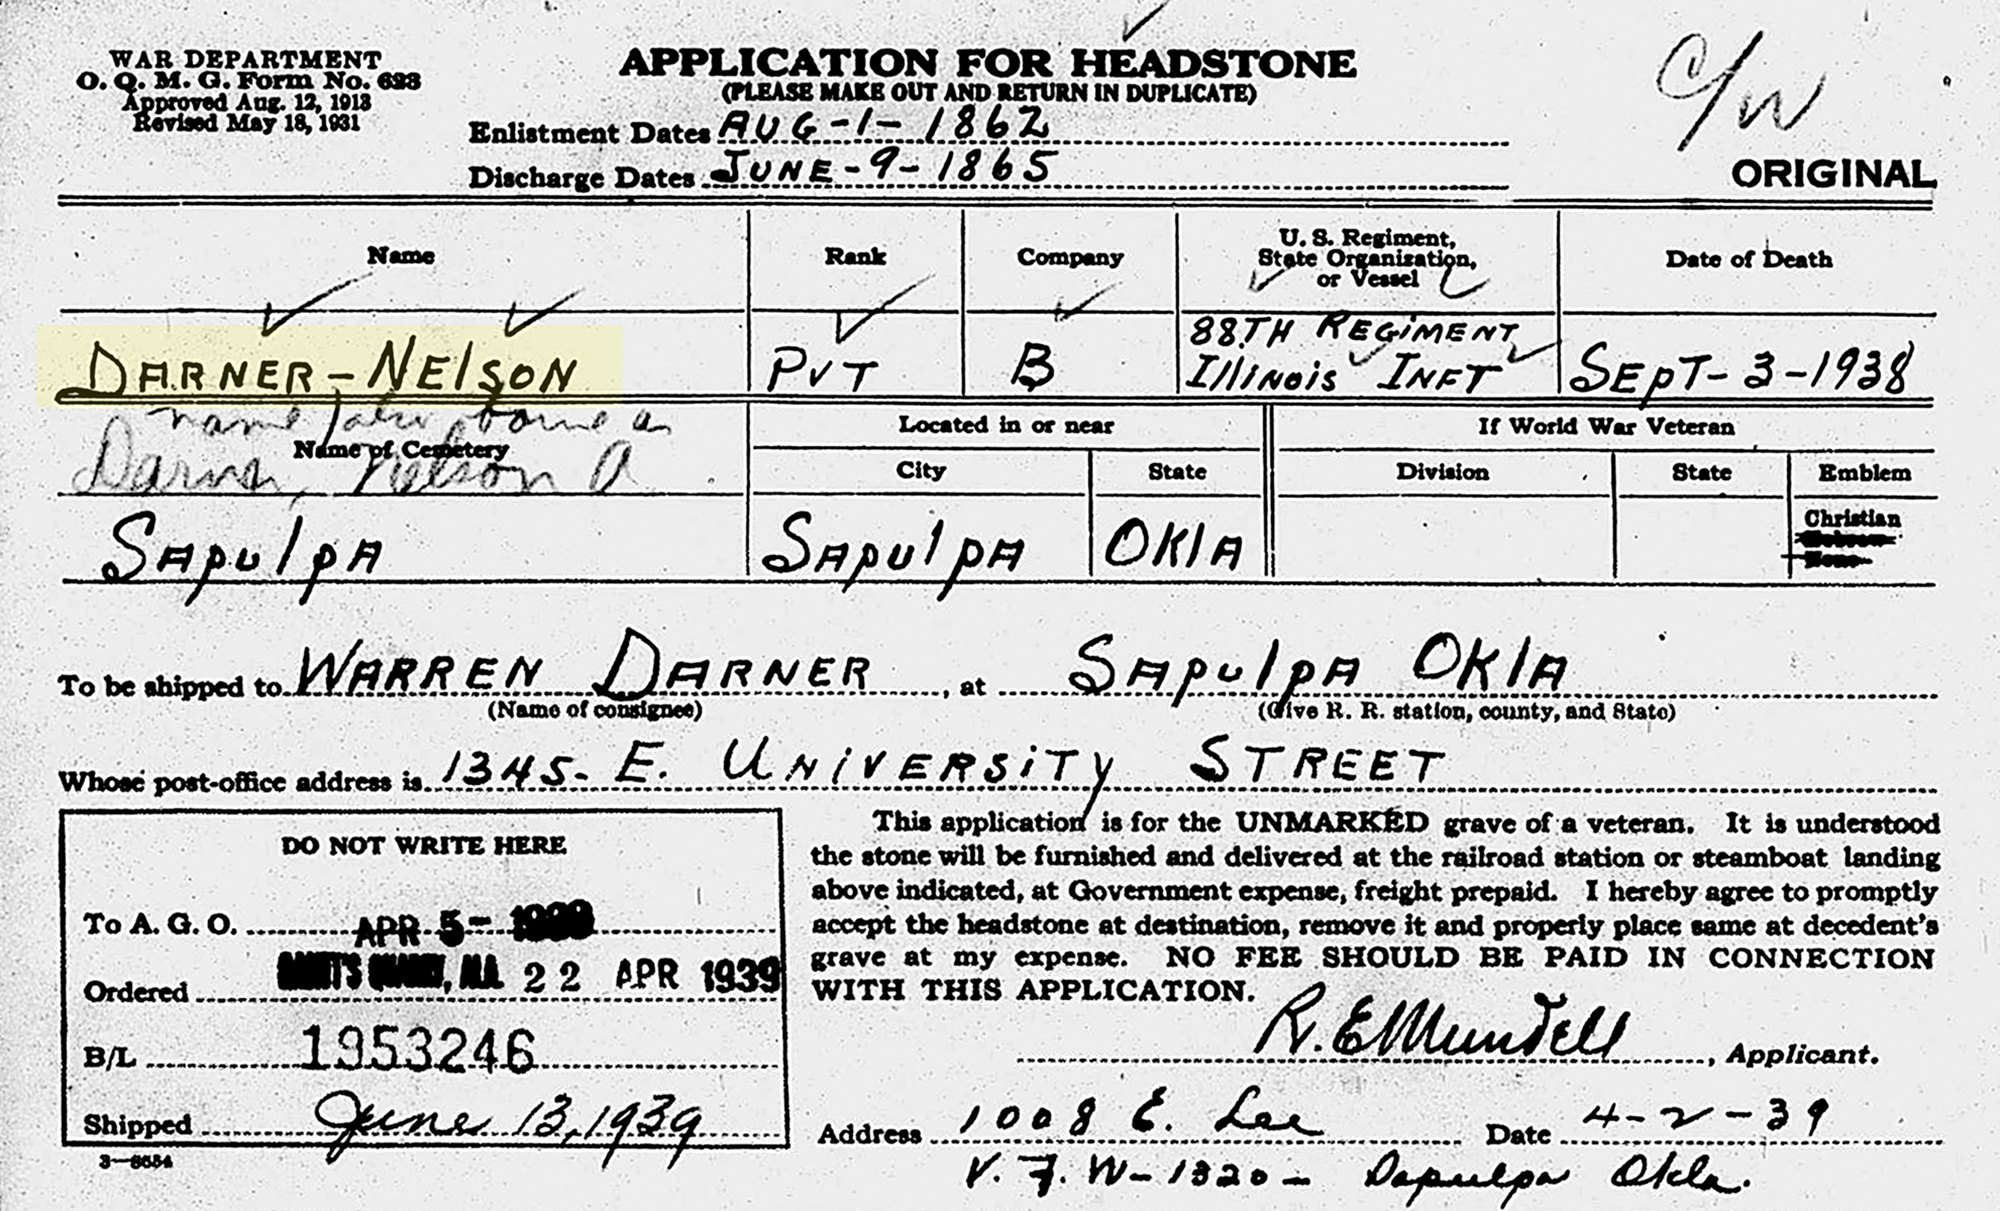 WAR DEPARTMENT
O. Q. M. G. Form No. 623
Approved Aug. 12, 1913
Revised May 18, 1931
APPLICATION FOR HEADSTONE
(PLEASE MAKE OUT AND RETURN IN DUPLICATE)
Enlistment Dates AUG-1-1862
Discharge Dates JUNE-9-1865
C/W
ORIGINAL
Name Rank Company U. S. Regiment, State Organization, or Vessel Date of Death
DARNER-NELSON PVT B 88TH REGIMENT ILLINOIS INFT SEPT-3-1938
name also borne as
Darner, Nelson A
Name of Cemetery Located in or near If World War Veteran
City State Division State Emblem
SAPULPA SAPULPA OKLA Christian
Hebrew
None
To be shipped to WARREN DARNER, at SAPULPA OKLA
(Name of consignee) (Give R. R. station, county, and State)
Whose post-office address is 1345- E. UNIVERSITY STREET
DO NOT WRITE HERE
To A. G. O. APR 5- 1939
Ordered 22 APR 1939
B/L 1953246
Shipped June 13, 1939
3-8654
This application is for the UNMARKED grave of a veteran. It is understood
the stone will be furnished and delivered at the railroad station or steamboat landing
above indicated, at Government expense, freight prepaid. I hereby agree to promptly
accept the headstone at destination, remove it and properly place same at decedent's
grave at my expense. NO FEE SHOULD BE PAID IN CONNECTION
WITH THIS APPLICATION.
R. E Mundell, Applicant.
Address 1008 E. Lee Date 4-2-39
V. F. W-1320- Sapulpa Okla.